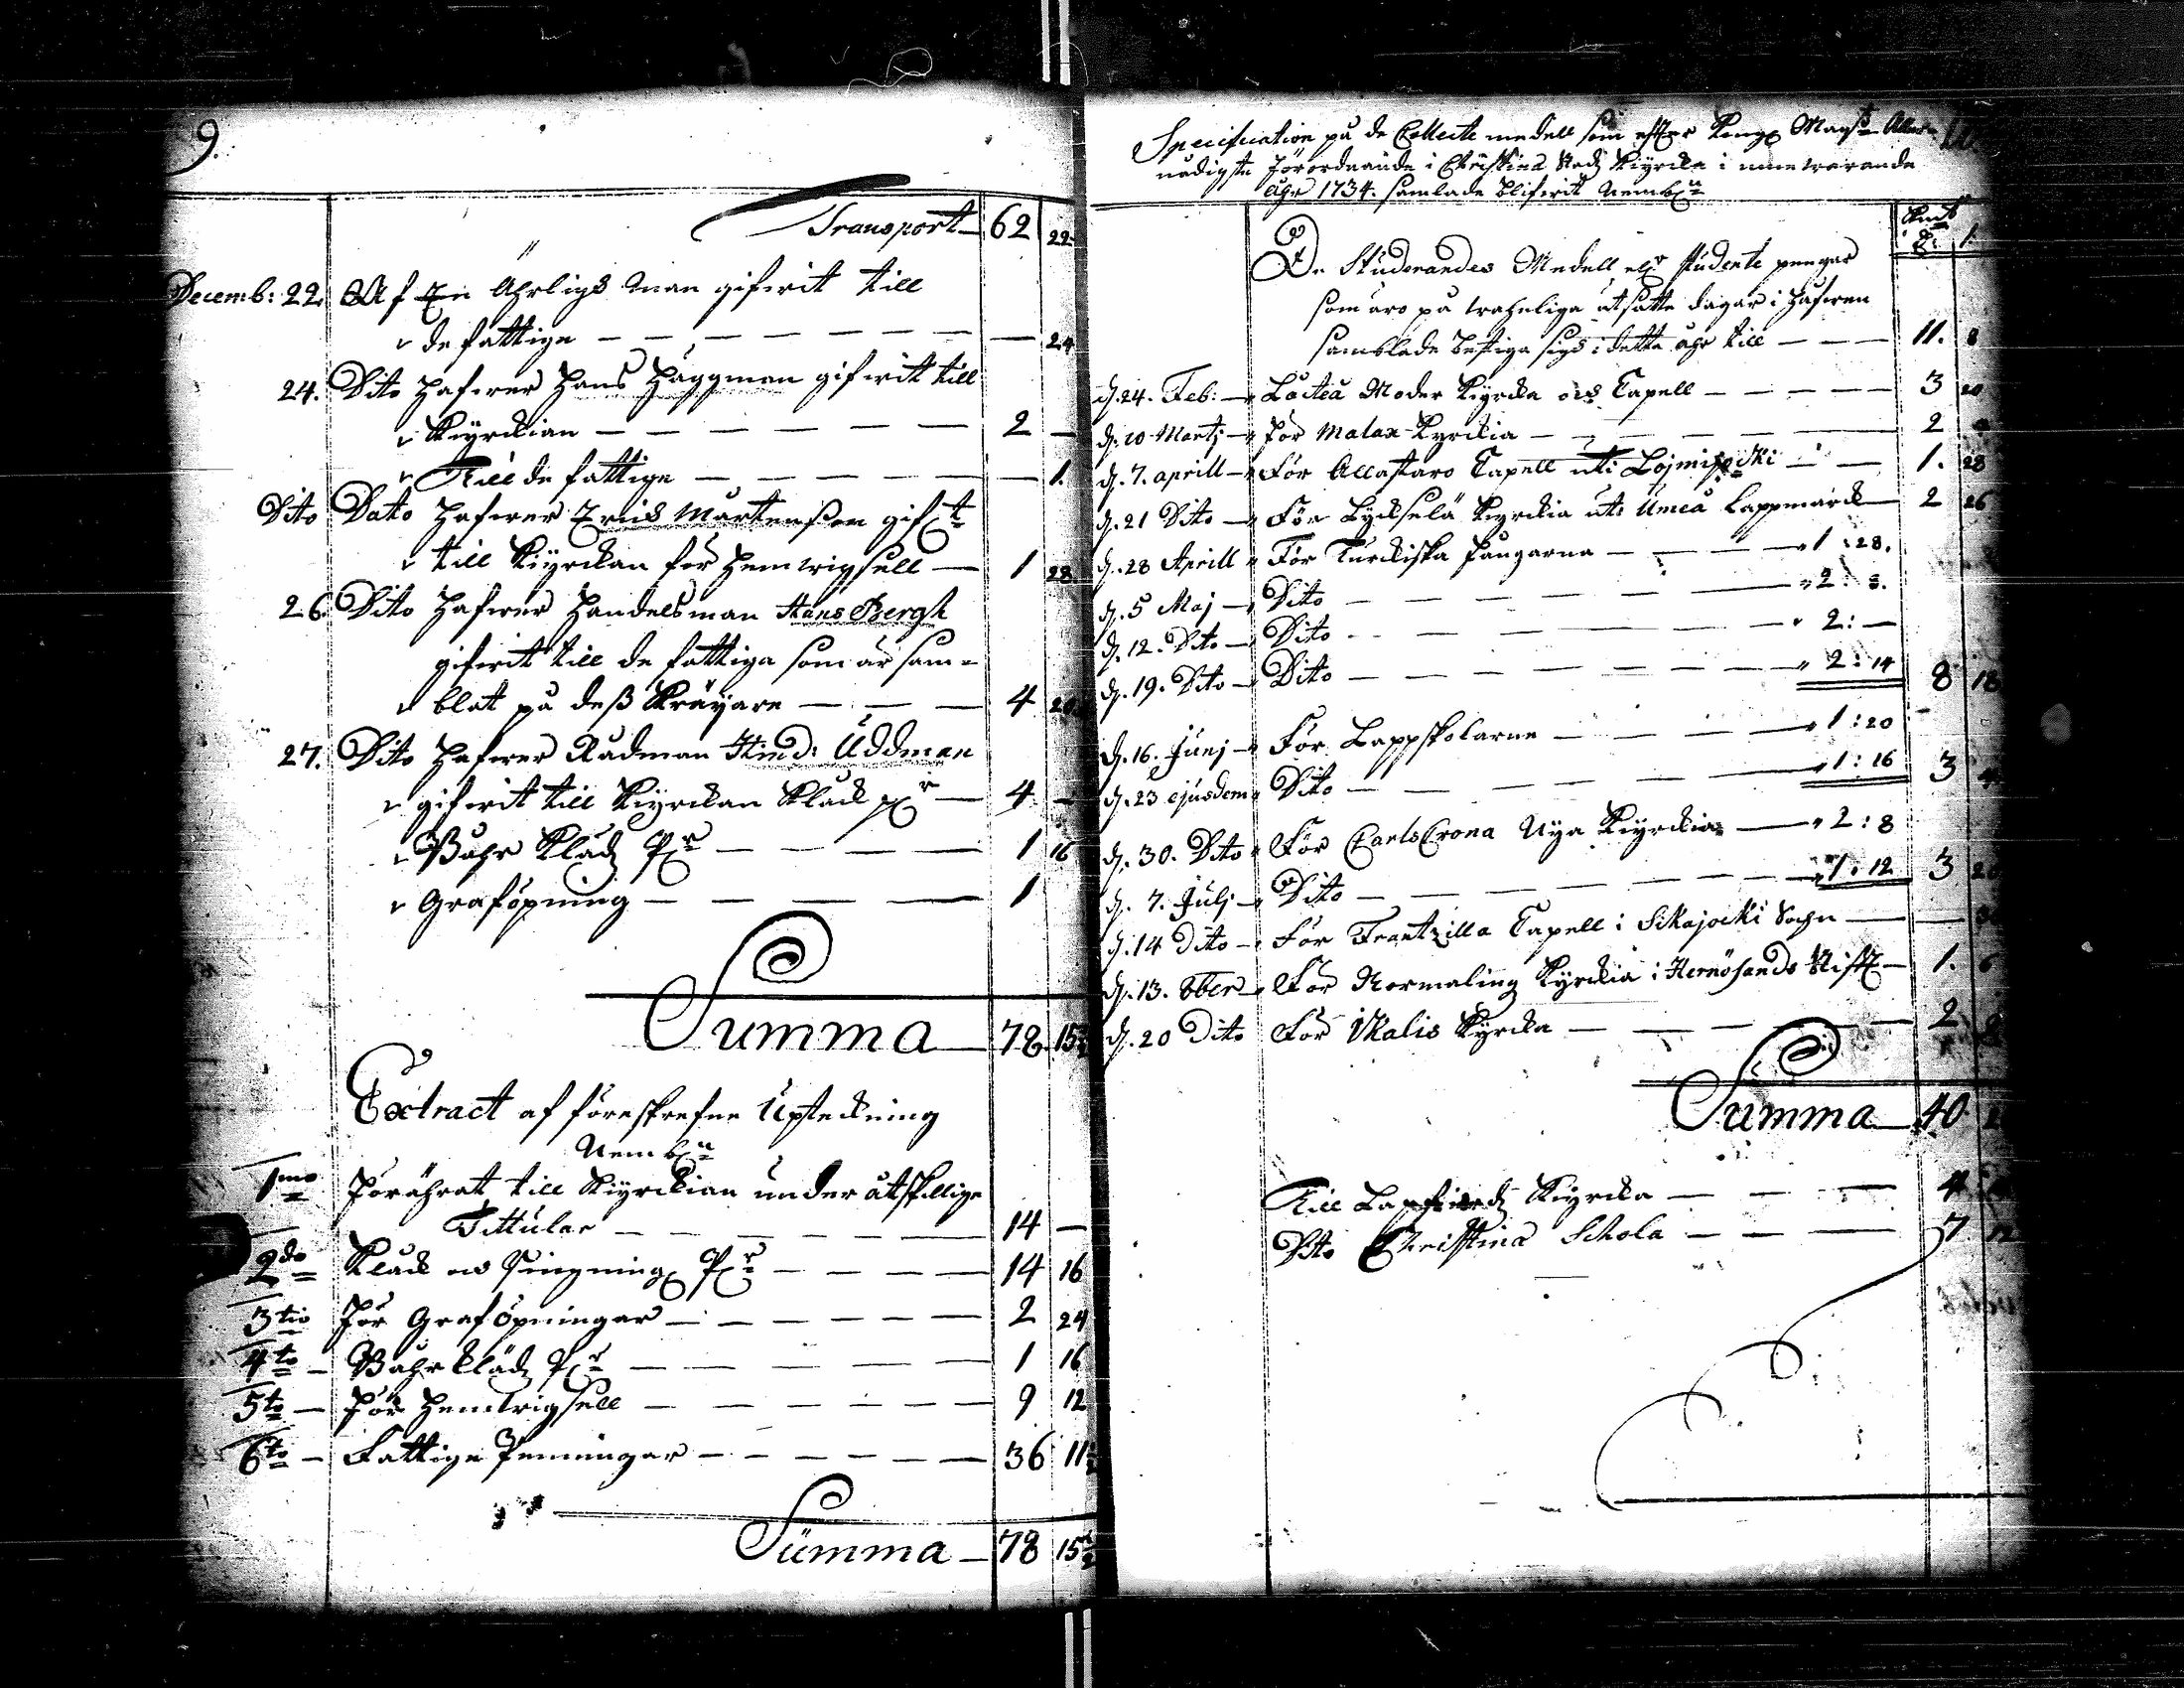 9.
Transport 62 22
Decemb: 22. Af En Ährligs Man gifwit till
de fattige — 24
24. Dito hafwer Hans Häggman gifwit till
Kiyrckian 2 —
Till de fattige — 1.
Dito Dato hafwer Eriis Mårtenßon gift
till Kiyrckan för hemwigsell 1 28
26. Dito hafwer Handelsman Hans Bergh
gifwit till de fattiga som är sam-
blat på deß Skräyare 4 20
27. Dito hafwer Rådman Hind: Uddman
gifwit till Kiyrckan Klåck pgr 4 —
Båhr Kläd Pgr 1 16
Graföpning 1
Summa 78. 15½
Extract af föreskrefne Upteckning
Nembl
1mo Förährat till Kiyrckian under åtskillige
Tittular 14 —
2do Klåck och Ringning Pgr 14 16
3tio För Graf öpningar 2 24
4to Båhrkläd Pgr 1 16
5to För Hemwigsell 9 12
6to Fattige Penningar 36 11½
Summa 78 15½
Specification på de Collecte medell som efter Kongl Mayst Aller-
nådigste Förordnande i Christina Stads Kiyrcka i innewarande
åhr 1734. samlade blifwit Nembl
De Studerandes Medell eller studente pengar
som äro på wahnliga utsatte dagar i hafwen
samblade bestiga sigh i detta åhr till 11. 8
d. 24. Feb: Lochteå Moder Kiyrcka och Capell 3 20
d. 10 Martj För Malax Kyrckia 2
d. 7. aprill För Allastaro Capell uti Lojmijocki 1. 28
d. 21 Dito För Lycksela Kyrckia uti Umeå Lappmarck 2 26
d. 28 Aprill För Turckiska fångarna 1:28.
d. 5 Maj Dito 2: 8.
d. 12. Dito Dito 2: —
d. 19. Dito Dito 2:14 8 18
d. 16. Junj För Lappskolarne 1:20
d. 23 ejusdem Dito 1:16 3 4
d. 30. Dito För CarlsCrona Nya Kiyrckia 2:8
d. 7. Julj Dito 1:12 3 20
d. 14 Dito För Frantzilla Capell i Sikajocki Sochn —
d. 13. 8ber För Normaling Kyrckia i Hernösands Stift 1. 6
d. 20 Dito För Ikalis Kyrcka 2
Summa 40
Till Lapfierds Kiyrcka 4
Dito Christina Schola 7 12